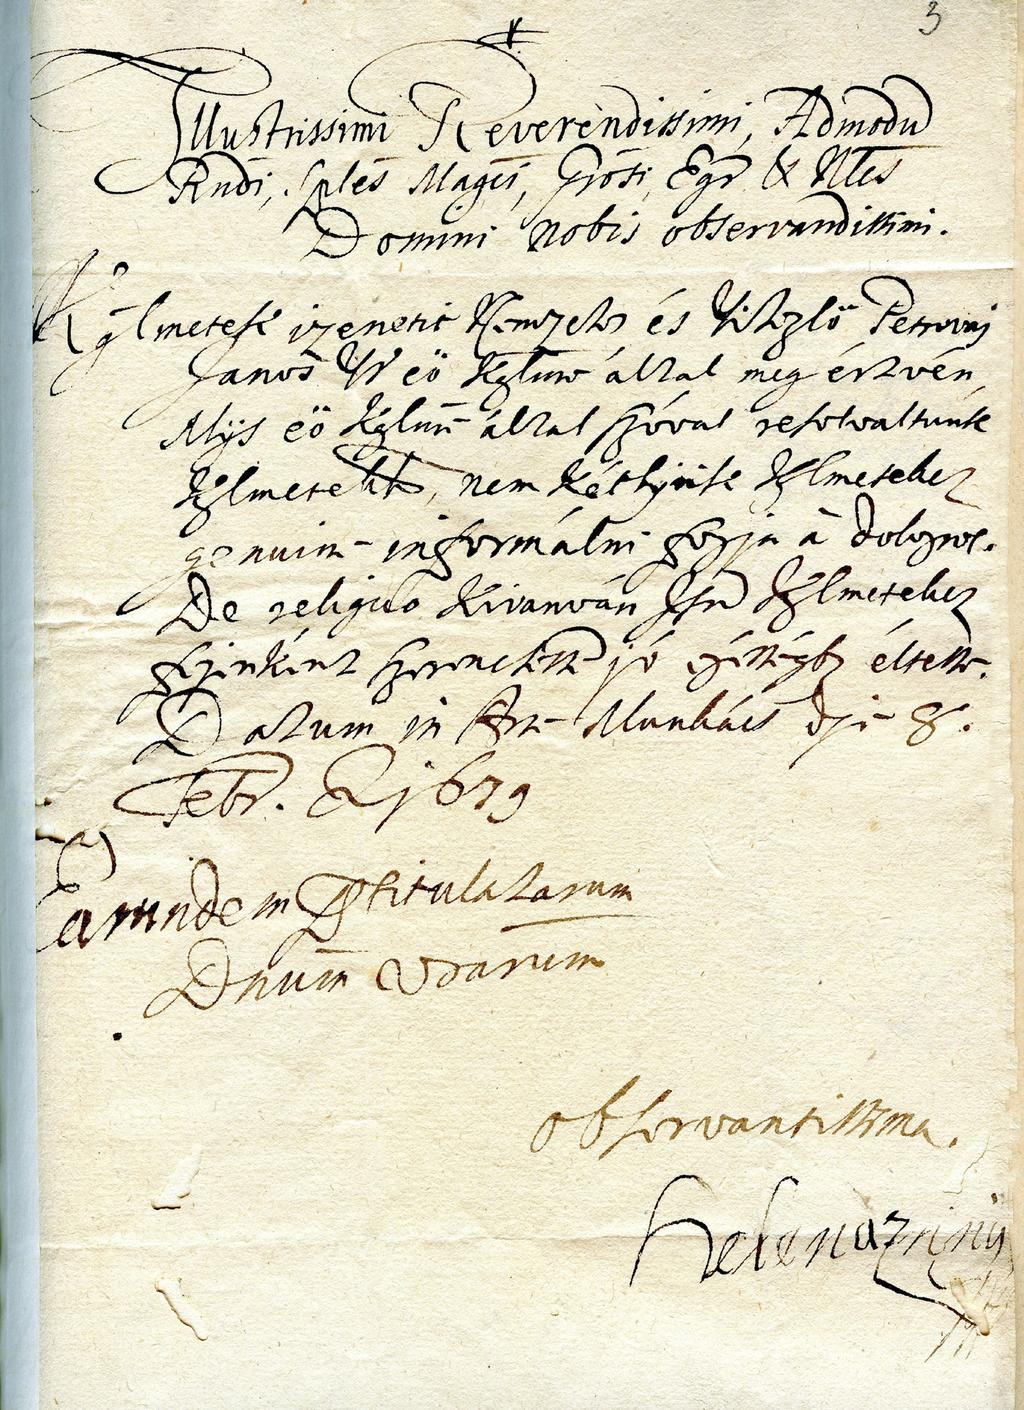 3
Illustrissimi Reverendissimi, Admodu
Rndi, Sples Magci, Grosi, Egr & Nles
Domini nobis observandissimi.
Kglmetek izenetit Nemzetes és Vitezlö Petrovaj
Janos Vr eö Kglme által meg értvén,
Mijs eö Kglme által szóval resolvaltunk
Kglmetekk, nem kéttyük Kglmeteket
genuine informálni fogja à dologrol.
De reliquo Kivanván Isn Kglmeteket
fejenként szerencsess jó egésségb éltesse.
Datum in Arce Munkács die 8.
Febr. A 1679
Earundem Ptitulatarum
Dnum Vrarum
observantissima.
Helena Zrinÿ